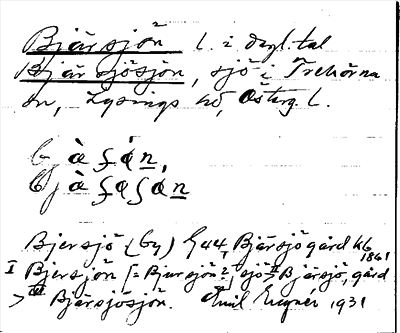 Bjärsjön l. i dagl. tal
Bjärsjösjön, sjö i Trehörna
sn, Lysings hd, Österg. l.
bjä
bjä
Bjersjö (by) G44, Bjärsjögård kb
1861
I Bjersjön [= Bjursjön?] sjö II Bjärsjö, gård
> III Bjärsjösjön. Emil 1931